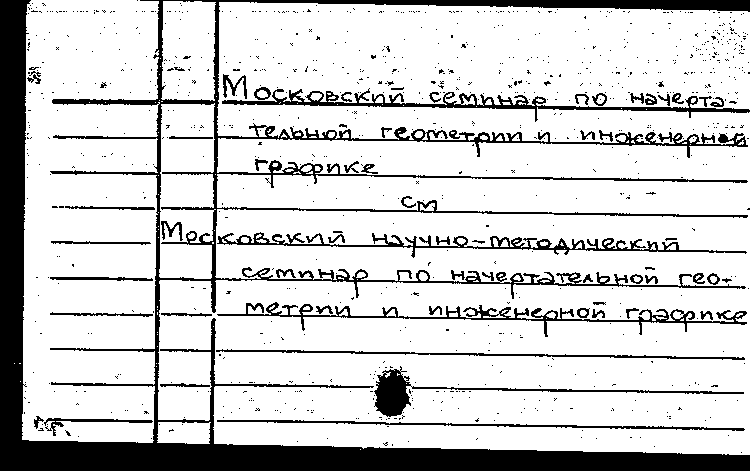 Московский семинар по начерта-
тельной геометрии и инженерной
графике
см
Московский научно-методический
семинар по начертательной гео-
метрии и инженерной графике